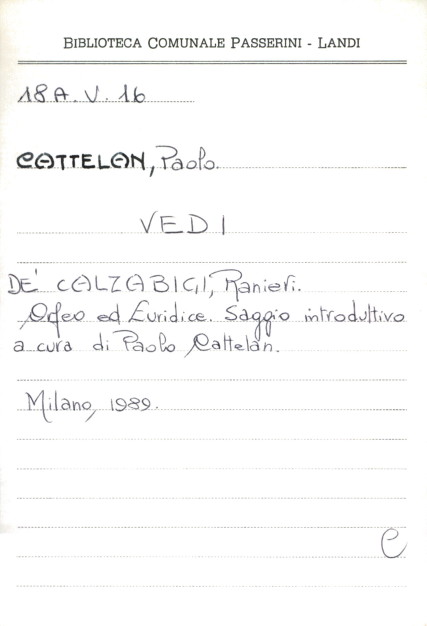 BIBLIOTECA COMUNALE PASSERINI - LANDI
18A.V.16
CATTELAN, Paolo.
VEDI
DE' CALZABIGI, Ranieri.
Orfeo ed Euridice. Saggio introduttivo
a cura di Paolo Cattelan.
Milano, 1989.
C